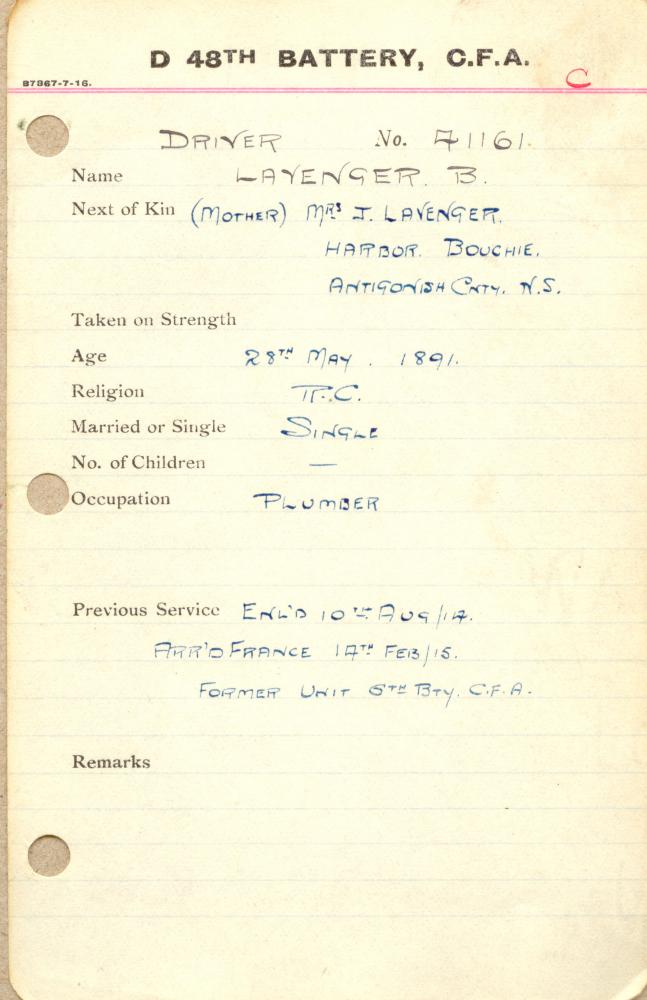 D 48TH BATTERY, C.F.A.
B7867-7-16.
C
DRIVER No. 41161.
Name LAVENGER. B.
Next of Kin (MOTHER) MRS J. LAVENGER.
HARBOR. BOUCHIE.
ANTIGONISH CNTY. N.S.
Taken on Strength
Age 28TH MAY. 1891.
Religion R.C.
Married or Single SINGLE
No. of Children —
Occupation PLUMBER
Previous Service ENL'D 10TH AUG/14.
ARR'D FRANCE 14TH FEB/15.
FORMER UNIT 6TH BTY. C.F.A.
Remarks